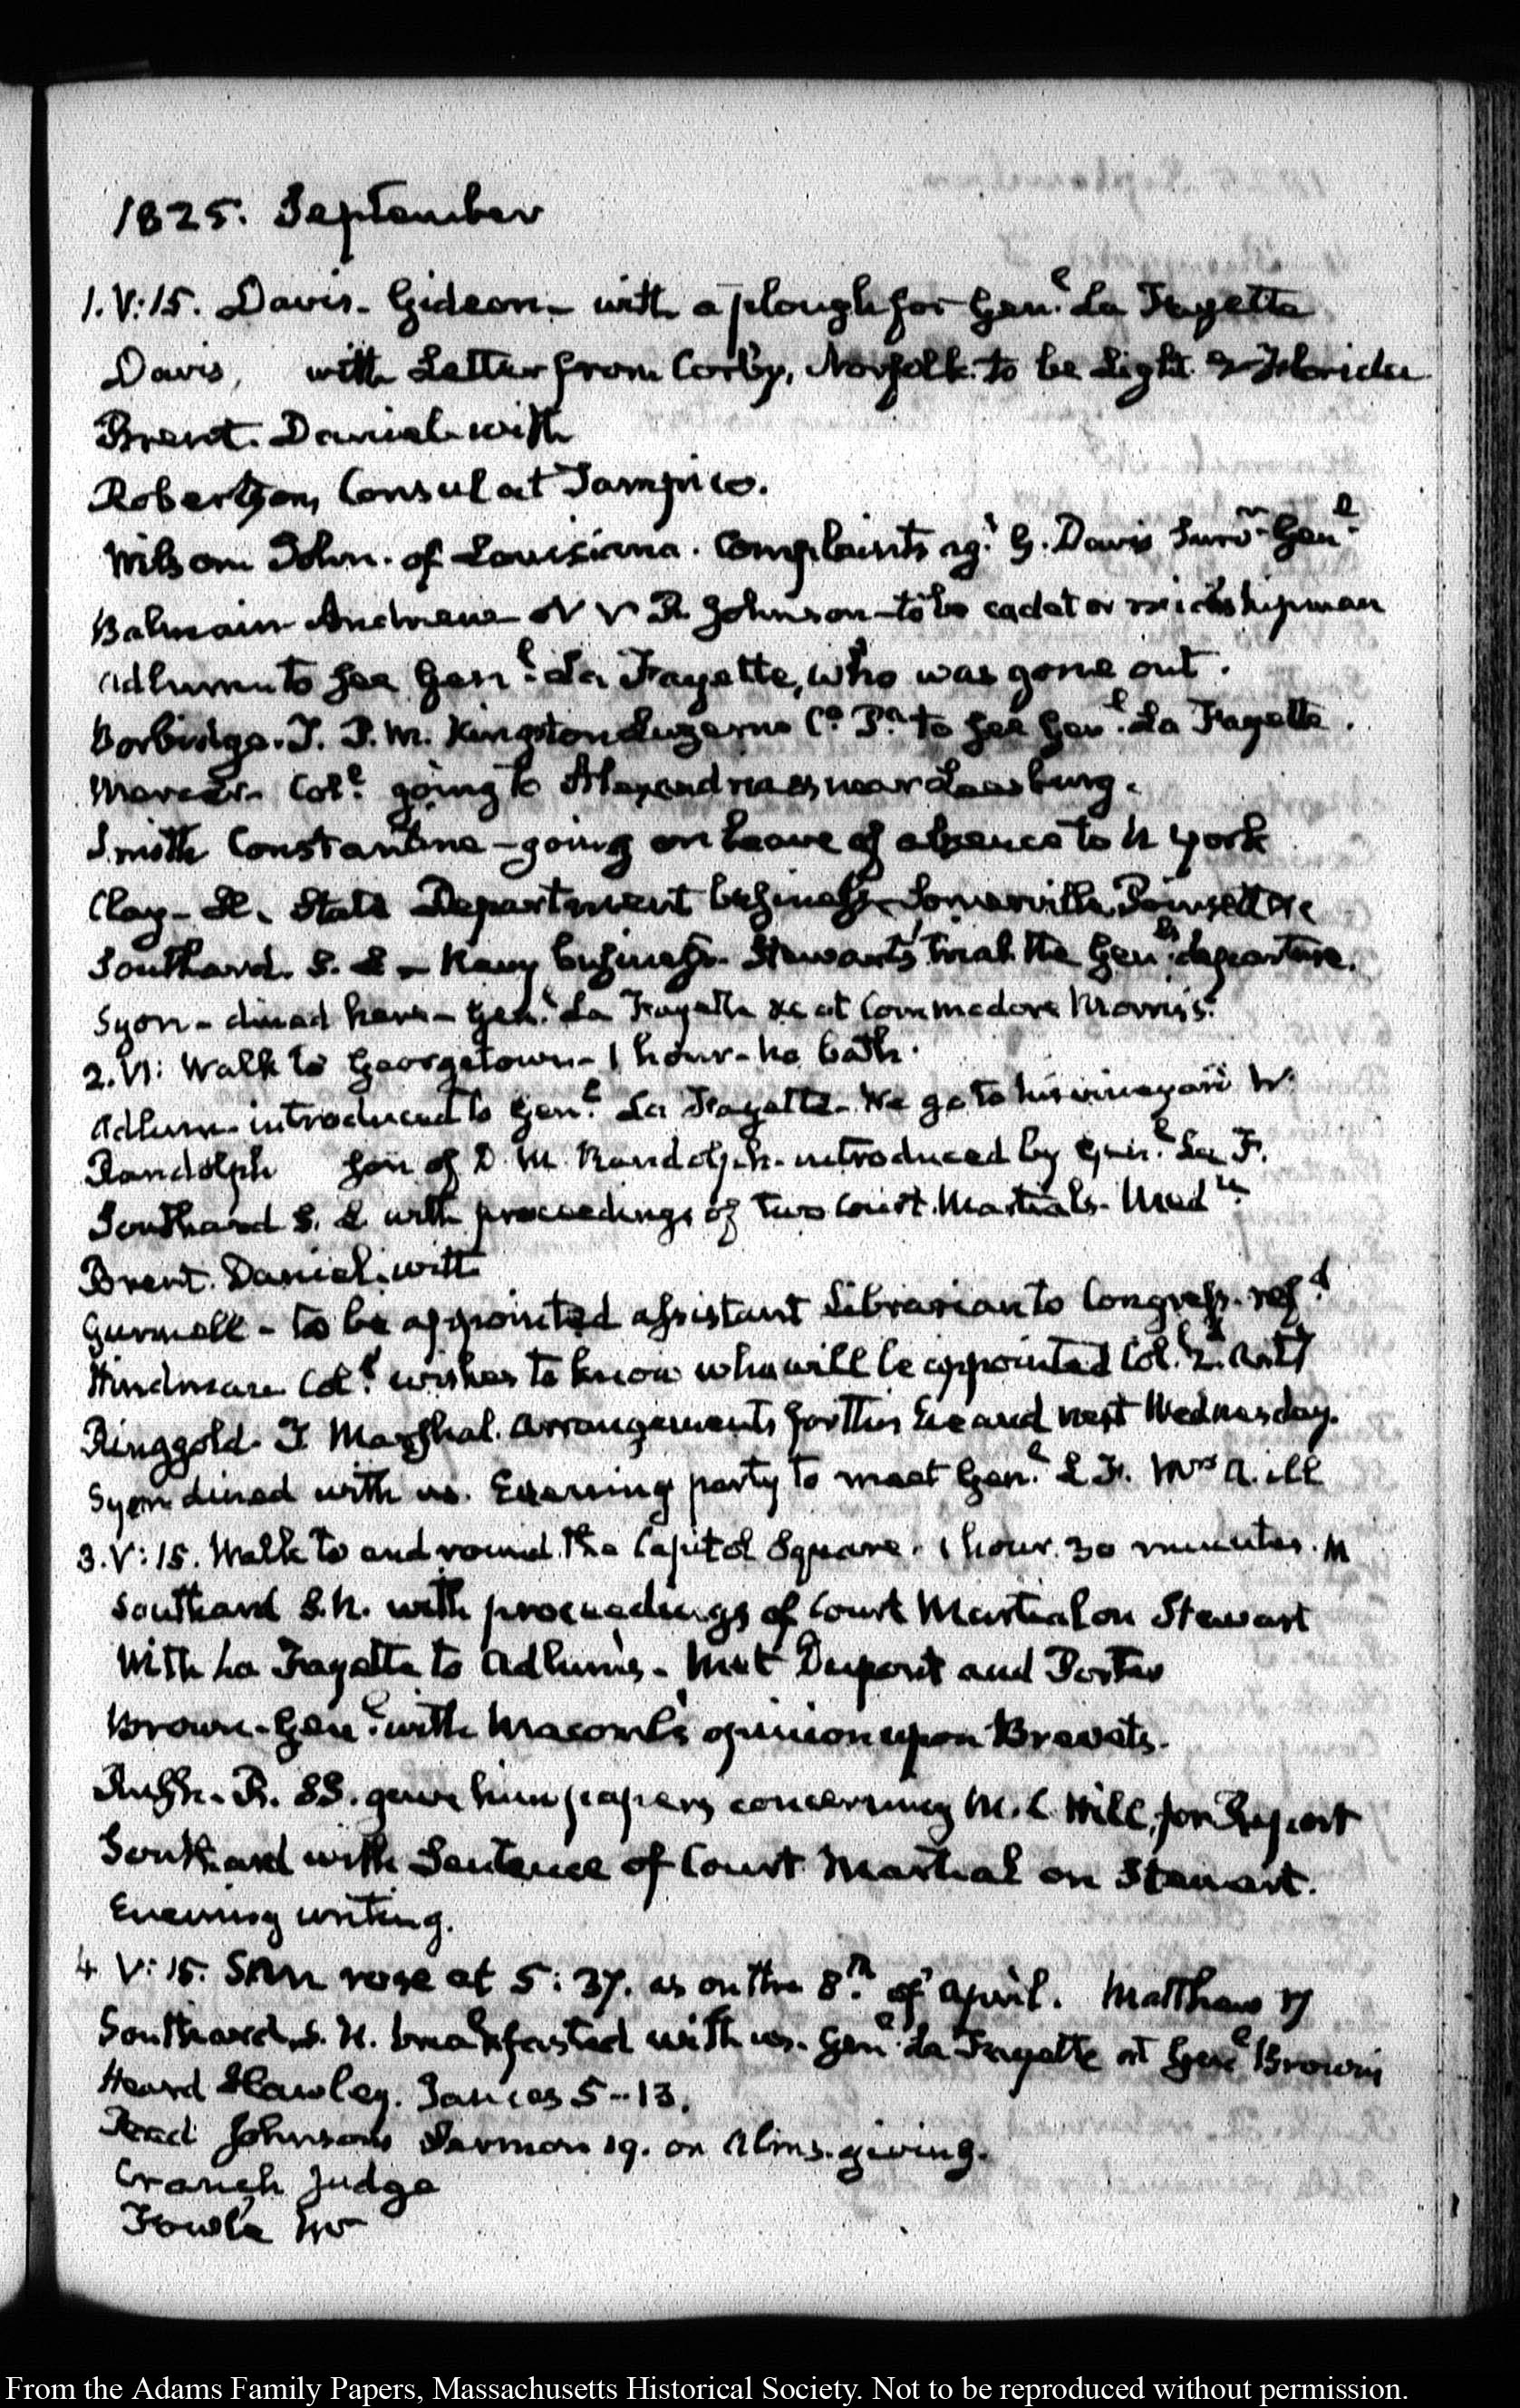 1825. September
1. V:15. Davis. Gideon – with a plough for Gen.l La Fayette
Davis, with Letter from Corby, Norfolk. to be Light Florida
Brent. Daniel with
Robertson, Consul at Tampico.
Wilson John. of Louisiana. Complaints ag.t G. Davis Surv.r Gen.l
Balmain Andrew – V R. Johnson – to be cadet or midshipman
Adlum to see Gen.l La Fayette, who was gone out.
Borbidge. J. P. M. Kingston Luzerne C.o P.a to see Gen.l La Fayette.
Mercer. Col.l going to near Leesburg.
Smith Constantine – going on leave of absence to N York
Clay – H. State Department business – Somerville, Poinsett &c
Southard. S. L – Navy business. Stewart's trial. the Gen.ls departure.
Syon – dined here – Gen.l La Fayette &c at Commodore Morris's.
2. VI: Walk to Georgetown – 1 hour – no bath.
Adlum. introduced to Gen.l La Fayette – We go to his vineyard
Randolph son of D. M. Randolph. introduced by Gen.l La F.
Southard S. L with proceedings of two Court Martials.
Brent. Daniel. with
Gurnell – to be appointed assistant Librarian to Congress.
Hindman Col.l wishes to know who will be appointed Col.l 2.d Art.y
Ringgold. T Marshal. Arrangements for this Eve and next Wednesday.
Syon dined with us. Evening party to meet Gen.l L F. Mrs A. ill
3. V:15. Walk to and round the Capitol Square. 1 hour. 30 minutes. M
Southard S. N. with proceedings of Court Martial on Stewart
With La Fayette to Adlum's – Met Dupont and Porter
Brown – Gen.l with Macomb's opinion upon Brevets.
Rush. R. S S. gave him papers concerning M. C Hill, for Report
Southard with Sentence of Court Martial on Stewart.
Evening writing.
4 V:15. Sun rose at 5:37. as on the 8.th of April. Matthew
Southard, S. N. breakfasted with us. Gen.l La Fayette at Gen.l Brown's
Heard Hawley. James 5–13.
Read Johnson's Sermon 19. on Alms. giving.
Cranch Judge
Fowle Mr
From the Adams Family Papers, Massachusetts Historical Society. Not to be reproduced without permission.